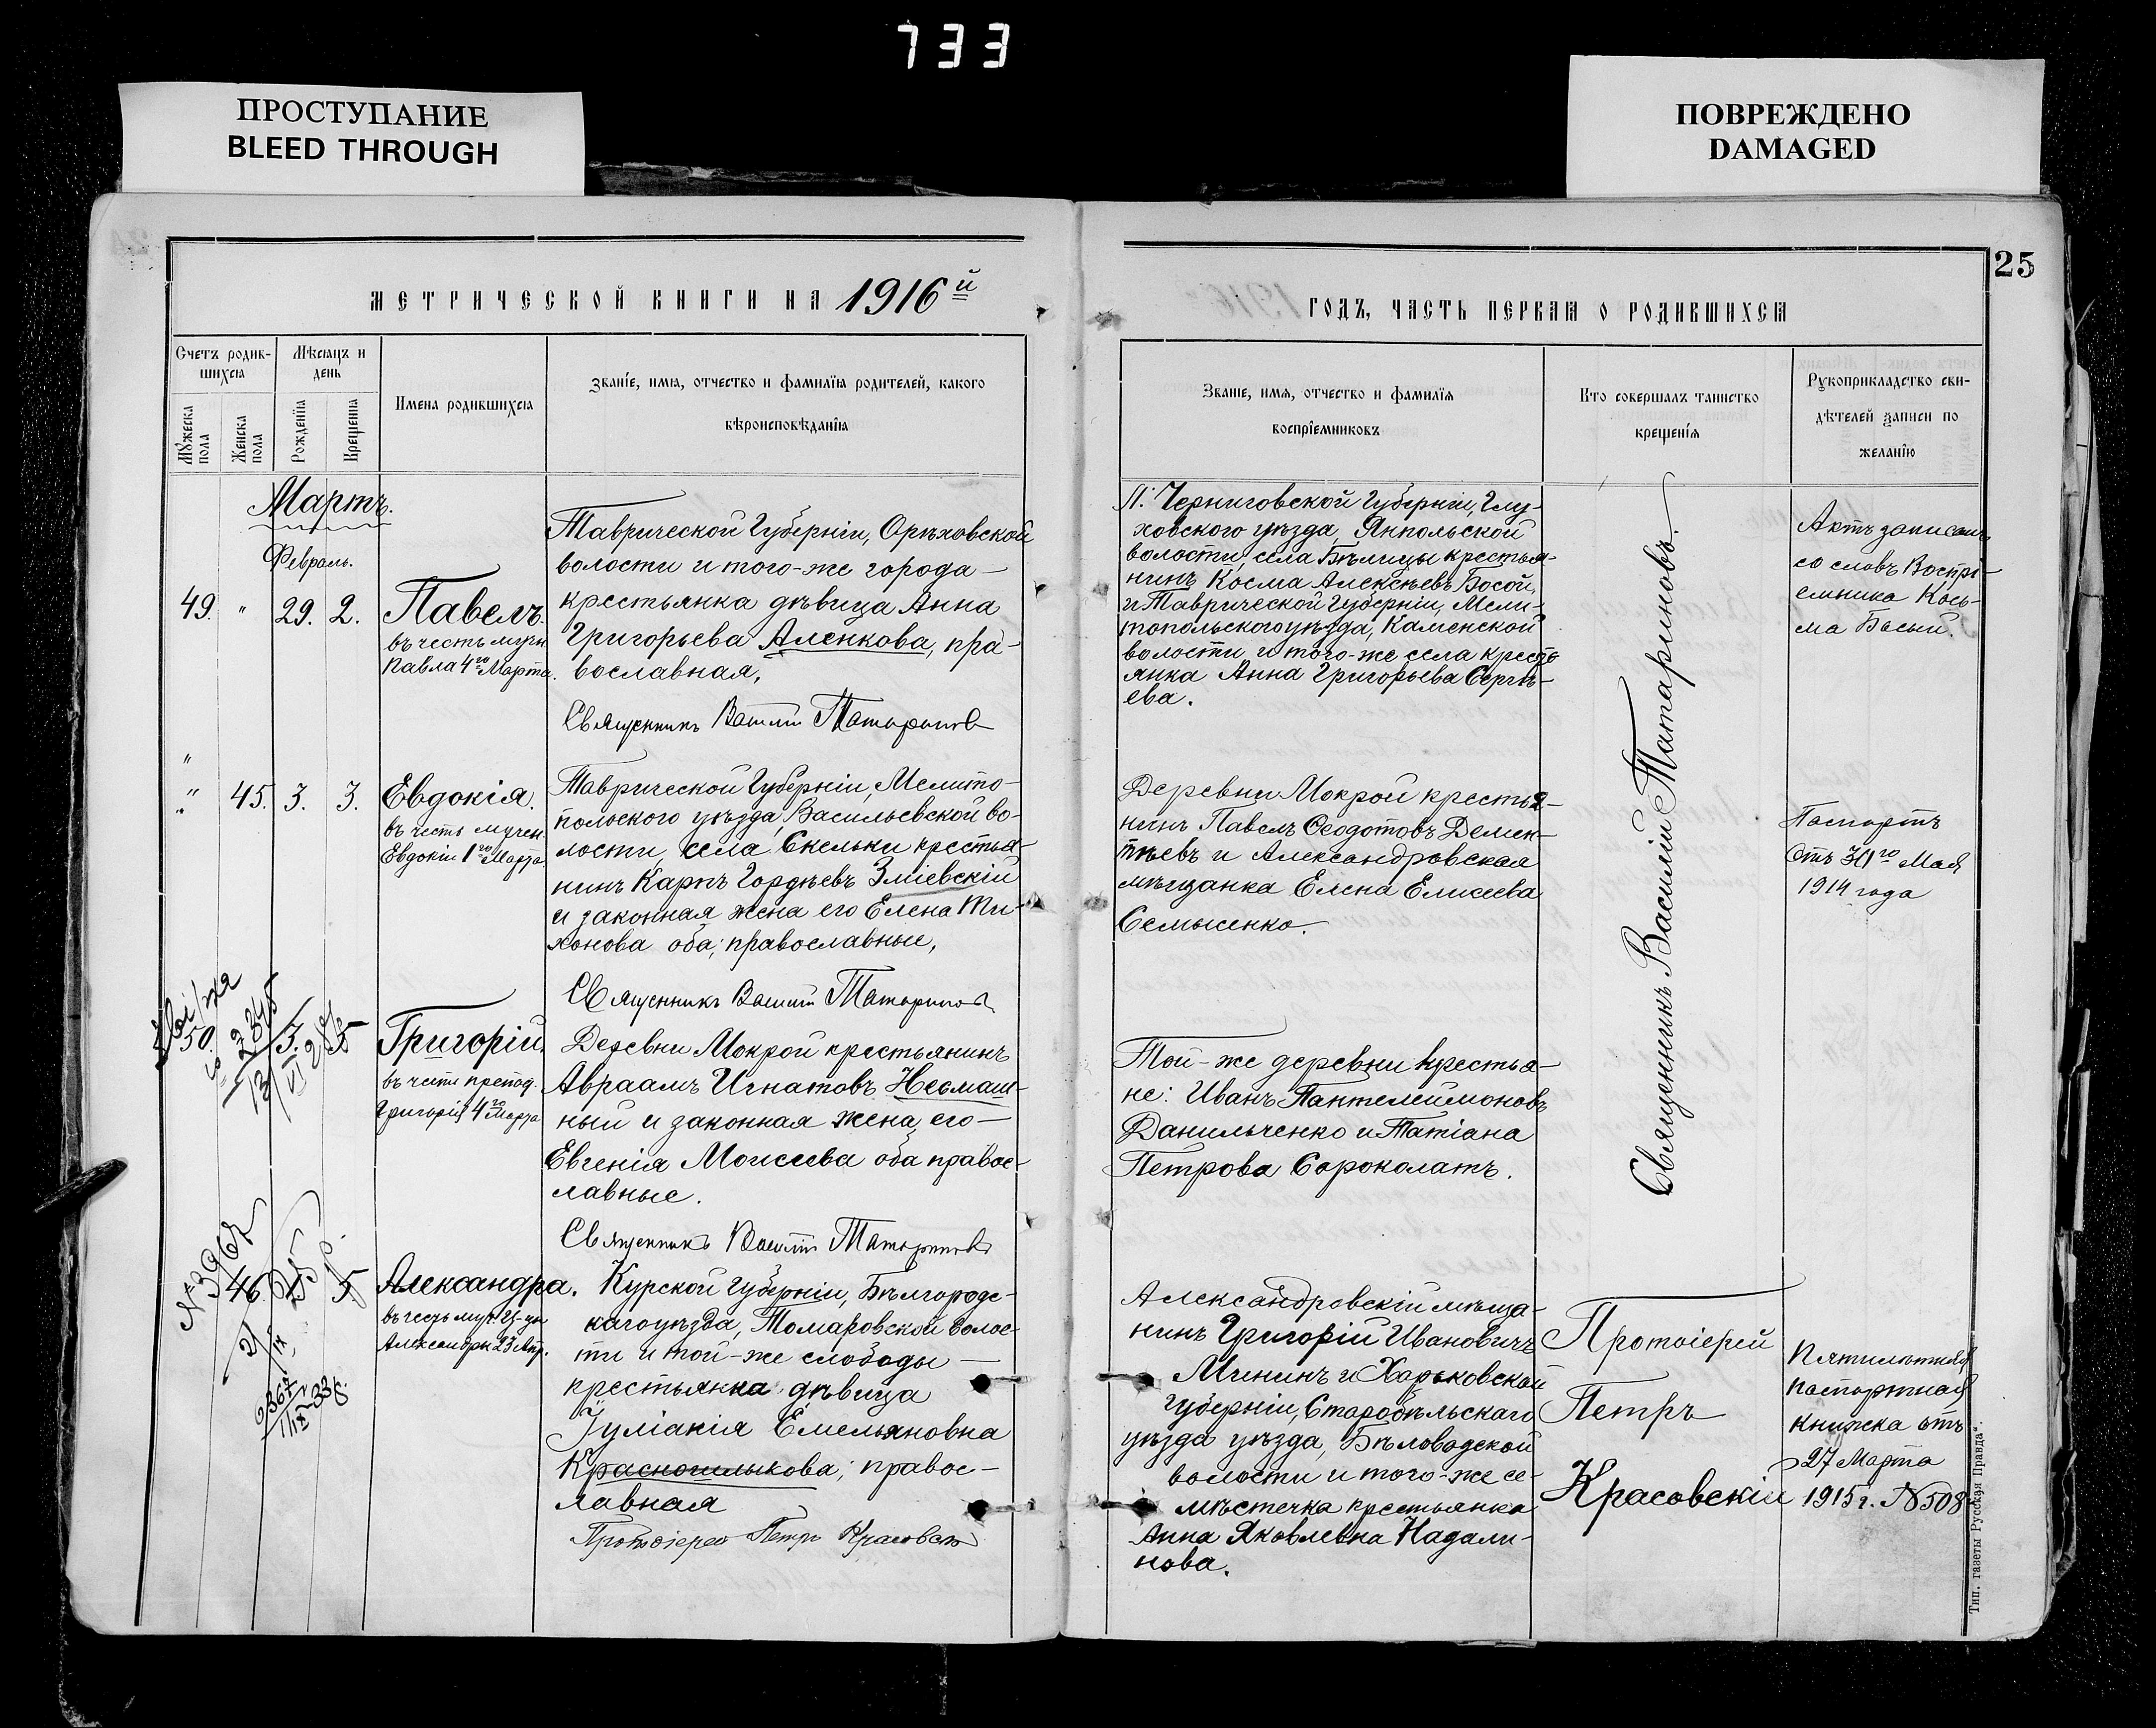 733
ПРОСТУПАНИЕ
BLEED THROUGH
ПОВРЕЖДЕНО
DAMAGED
25
МЕТРИЧЕСКОЙ КНИГИ НА 1916й
ГОДЪ, ЧАСТЬ ПЕРВАЯ О РОДИВШИХСЯ
Счетъ родив-
шихся
Мѣсяцъ и
день
Мужеска пола
Женска пола
Рожденія
Крещенія
Имена родившихся
Званіе, имя, отчество и фамилія родителей, какого
вѣроисповѣданія
Званіе, имя, отчество и фамилія
воспріемниковъ
Кто совершалъ таинство
крещенія
Рукоприкладство сви-
дѣтелей записи по
желанію
Мартъ.
Февраль.
49. " 29. 2.
Павелъ.
въ честь мучн.
Павла 4го Марта.
Таврической Губерніи, Орѣховской
волости и того-же города
крестьянка дѣвица Анна
Григорьева Аленкова, пра-
вославная,
Священникъ Василій Татариновъ
Л. Черниговской Губерніи, Глу-
ховского уѣзда, Янпольской
волости, села Бѣлицы крестья-
нинъ Косма Алексѣевъ Босой,
и Таврической Губерніи, Мели-
топольского уѣзда, Каменской
волости и того-же села кресть
янка Анна Григорьева Сергѣ-
ева.
Священникъ Василій Татариновъ.
Актъ записанъ
со словъ Воспрі-
емника Кось-
ма Босый.
"
" 45. 3. 3.
Евдокія.
въ честь мучен.
Евдокіи 1го Марта
Таврической Губерніи, Мелито-
польского уѣзда, Васильевской во-
лости, села Скельки крестья-
нинъ Карпъ Гордѣевъ Зміевскій
и законная жена его Елена Ти-
хонова оба; православные,
Священникъ Василій Татариновъ
Деревни Мокрой крестья-
нинъ Павелъ Ѳеодотовъ Демен-
тѣевъ и Александровская
мѣщанка Елена Елисеева
Семысенко.
Паспортъ
Отъ 30го Мая
1914 года
50. 3. 5
Григорій.
въ честь препод.
Григорія 4го Марта
Деревни Мокрой крестьянинъ
Авраамъ Игнатовъ Несмаш-
ный и законная жена его
Евгенія Моисеева оба правос-
лавные.
Священникъ Василій Татариновъ
Той-же деревни крестья-
не: Иванъ Пантелеймоновъ
Данильченко и Татіана
Петрова Сороколатъ.
№ 3967
46. 5
Александра.
въ честь муч. Ц-цы
Александры 23 Апр.
Курской Губерніи, Бѣлгородс-
каго уѣзда, Томаровской волос-
ти и той-же слободы
крестьянка дѣвица
Іуліакія Емельяновна
Красношлыкова; правос-
лавная
Протоіерей Петръ Красовскій
Александровскій мѣща-
нинъ Григорій Ивановичъ
Мининъ и Харьковской
губерніи, Старобѣльскаго
уѣзда уѣзда, Бѣловодской
волости и того-же се-
мѣстечка крестьянка
Анна Яковлевна Надали-
нова.
Протоіерей
Петръ
Красовскій
Пятилѣтняя
паспортная
книжка отъ
27 Марта
1915 г. №508
Тип. газеты „Русская Правда“.